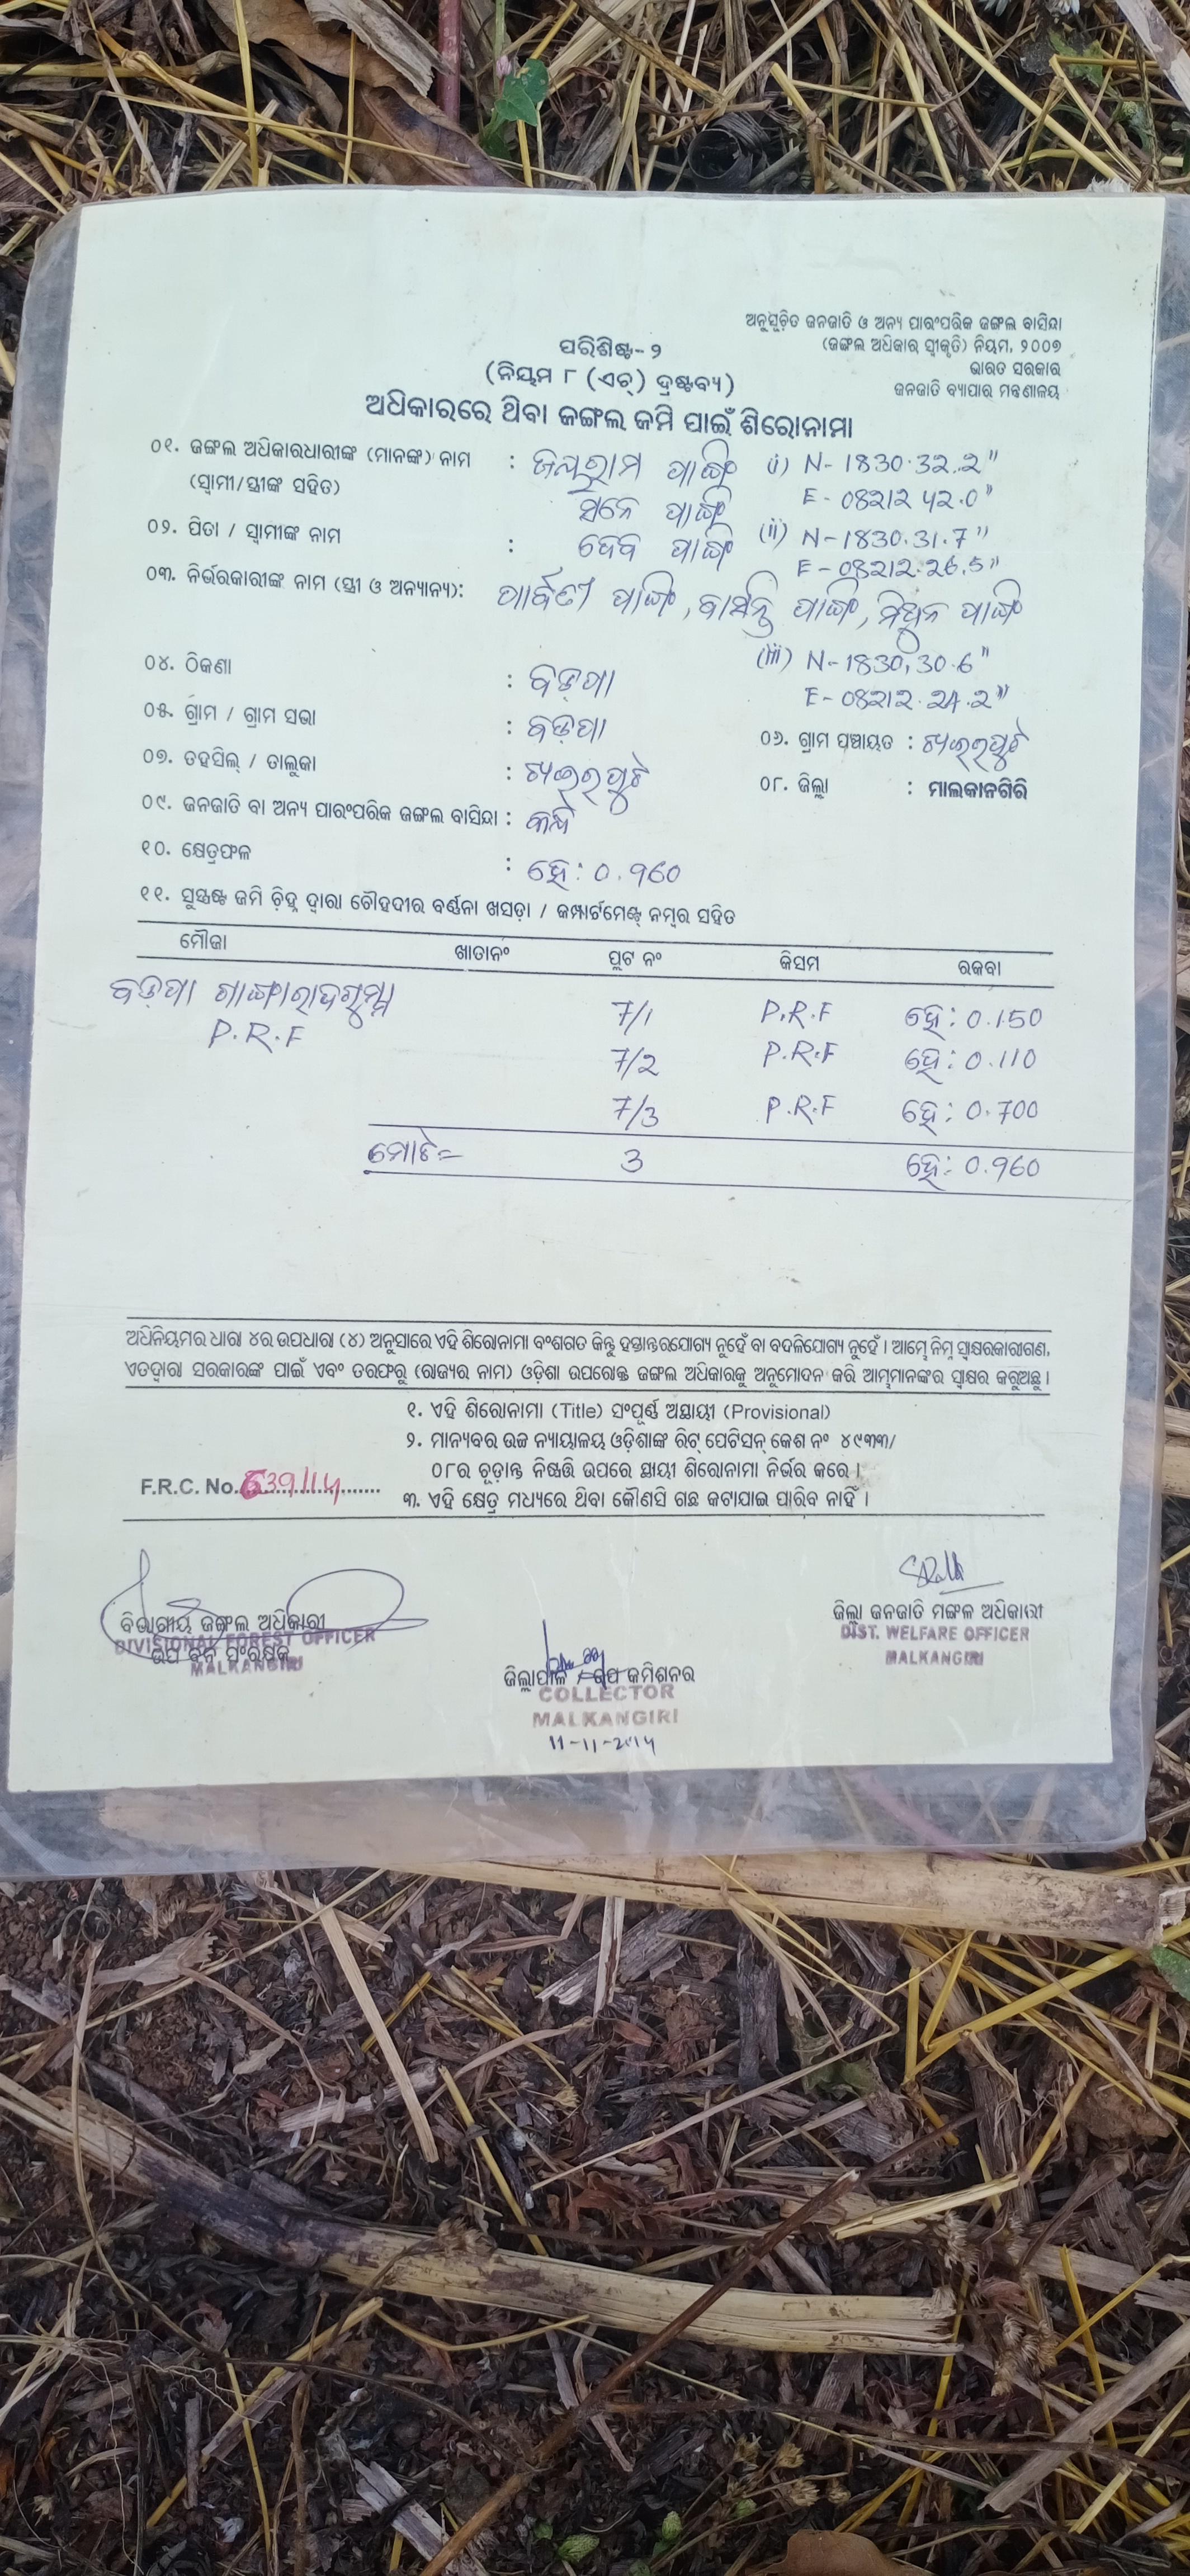 ଅନୁସୂଚିତ ଜନଜାତି ଓ ଅନ୍ୟ ପାରଂପରିକ ଜଙ୍ଗଲ ବାସିନ୍ଦା
(ଜଙ୍ଗଲ ଅଧିକାର ସ୍ୱୀକୃତି) ନିୟମ, ୨୦୦୭
ଭାରତ ସରକାର
ଜନଜାତି ବ୍ୟାପାର ମନ୍ତ୍ରଣାଳୟ
ପରିଶିଷ୍ଟ- ୨
(ନିୟମ ୮ (ଏଚ୍) ଦ୍ରଷ୍ଟବ୍ୟ)
ଅଧିକାରରେ ଥିବା ଜଙ୍ଗଲ ଜମି ପାଇଁ ଶିରୋନାମା
୦୧. ଜଙ୍ଗଲ ଅଧିକାରଧାରୀଙ୍କ (ମାନଙ୍କ) ନାମ : ଜୟରାମ ପାଙ୍ଗି (i) N- 1830.32.2"
(ସ୍ୱାମୀ/ସ୍ତ୍ରୀଙ୍କ ସହିତ) ସନେ ପାଙ୍ଗି E - 08212 42.0"
୦୨. ପିତା / ସ୍ୱାମୀଙ୍କ ନାମ : ଦେବି ପାଙ୍ଗି (ii) N-1830.31.7"
E-08212.26.5"
୦୩. ନିର୍ଭରକାରୀଙ୍କ ନାମ (ସ୍ତ୍ରୀ ଓ ଅନ୍ୟାନ୍ୟ): ପାର୍ବତୀ ପାଙ୍ଗି, ବାସନ୍ତି ପାଙ୍ଗି, ମିଥୁନ ପାଙ୍ଗି
(iii) N-1830,30.6"
୦୪. ଠିକଣା : ବଡ଼ପଦା E- 08212.24.2"
୦୫. ଗ୍ରାମ / ଗ୍ରାମ ସଭା : ବଡ଼ପଦା ୦୬. ଗ୍ରାମ ପଞ୍ଚାୟତ : ଖଇରପୁଟ
୦୭. ତହସିଲ୍ / ତାଲୁକା : ଖଇରପୁଟ ୦୮. ଜିଲ୍ଲା : ମାଲକାନଗିରି
୦୯. ଜନଜାତି ବା ଅନ୍ୟ ପାରଂପରିକ ଜଙ୍ଗଲ ବାସିନ୍ଦା : କନ୍ଧ
୧୦. କ୍ଷେତ୍ରଫଳ : ହେ: 0.960
୧୧. ସୁସ୍ପଷ୍ଟ ଜମି ଚିହ୍ନ ଦ୍ୱାରା ଚୌହଦୀର ବର୍ଣ୍ଣନା ଖସଡ଼ା / କମ୍ପାର୍ଟମେଣ୍ଟ୍ ନମ୍ବର ସହିତ
ମୌଜା ଖାତାନଂ ପ୍ଲଟ ନଂ କିସମ ରକବା
ବଡ଼ପଦା 7/1 P.R.F ହେ: 0.150
P.R.F 7/2 P.R.F ହେ: 0.110
7/3 P.R.F ହେ: 0.700
ମୋଟ= 3 ହେ: 0.960
ଅଧିନିୟମର ଧାରା ୪ର ଉପଧାରା (୪) ଅନୁସାରେ ଏହି ଶିରୋନାମା ବଂଶଗତ କିନ୍ତୁ ହସ୍ତାନ୍ତରଯୋଗ୍ୟ ନୁହେଁ ବା ବଦଳିଯୋଗ୍ୟ ନୁହେଁ । ଆମ୍ଭେ ନିମ୍ନ ସ୍ୱାକ୍ଷରକାରୀଗଣ,
ଏତଦ୍ଦ୍ୱାରା ସରକାରଙ୍କ ପାଇଁ ଏବଂ ତରଫରୁ (ରାଜ୍ୟର ନାମ) ଓଡ଼ିଶା ଉପରୋକ୍ତ ଜଙ୍ଗଲ ଅଧିକାରକୁ ଅନୁମୋଦନ କରି ଆମ୍ଭମାନଙ୍କର ସ୍ୱାକ୍ଷର କରୁଅଛୁ ।
୧. ଏହି ଶିରୋନାମା (Title) ସଂପୂର୍ଣ୍ଣ ଅସ୍ଥାୟୀ (Provisional)
୨. ମାନ୍ୟବର ଉଚ୍ଚ ନ୍ୟାୟାଳୟ ଓଡ଼ିଶାଙ୍କ ରିଟ୍ ପେଟିସନ୍ କେଶ ନଂ ୪୯୩୩/
୦୮ର ଚୂଡ଼ାନ୍ତ ନିଷ୍ପତ୍ତି ଉପରେ ସ୍ଥାୟୀ ଶିରୋନାମା ନିର୍ଭର କରେ ।
F.R.C. No. 639/14
୩. ଏହି କ୍ଷେତ୍ର ମଧ୍ୟରେ ଥିବା କୌଣସି ଗଛ କଟାଯାଇ ପାରିବ ନାହିଁ ।
ବିଭାଗୀୟ ଜଙ୍ଗଲ ଅଧିକାରୀ
DIVISIONAL FOREST OFFICER
ଉପ ବନ ସଂରକ୍ଷକ
MALKANGIRI
ଜିଲ୍ଲା ଜନଜାତି ମଙ୍ଗଳ ଅଧିକାରୀ
DIST. WELFARE OFFICER
MALKANGIRI
ଜିଲ୍ଲାପାଳ / ଉପ କମିଶନର
COLLECTOR
MALKANGIRI
11-11-2014